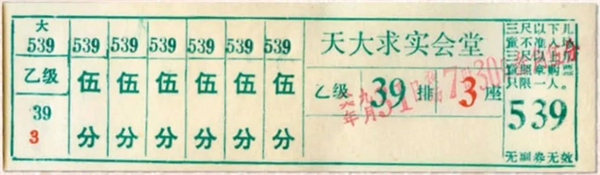 大
539
乙级
39
3
539 539 539 539 539 539
伍 伍 伍 伍 伍 伍
分 分 分 分 分 分
天大求实会堂
乙级 39排 3座
三尺以下儿
童不准入场
三尺以上儿
童照章购票
只限一人。
539
无副券无效